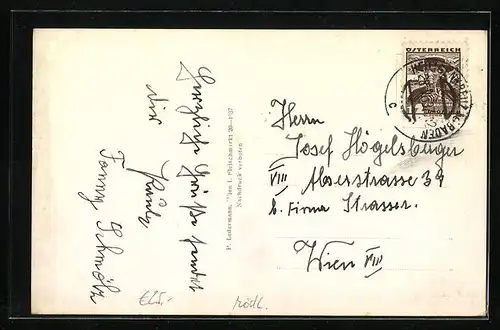 Herzliche Grüße sendet
Dir
Tonny Schmölz
P. Ledermann, Wien I, Fleischmarkt 20—1937
Nachdruck verboten
ÖSTERREICH
BADEN
C
Herrn
Josef Högelsberger
VIII Alserstrasse 39
b. Firma Strasser.
Wien VIII
Mödl.